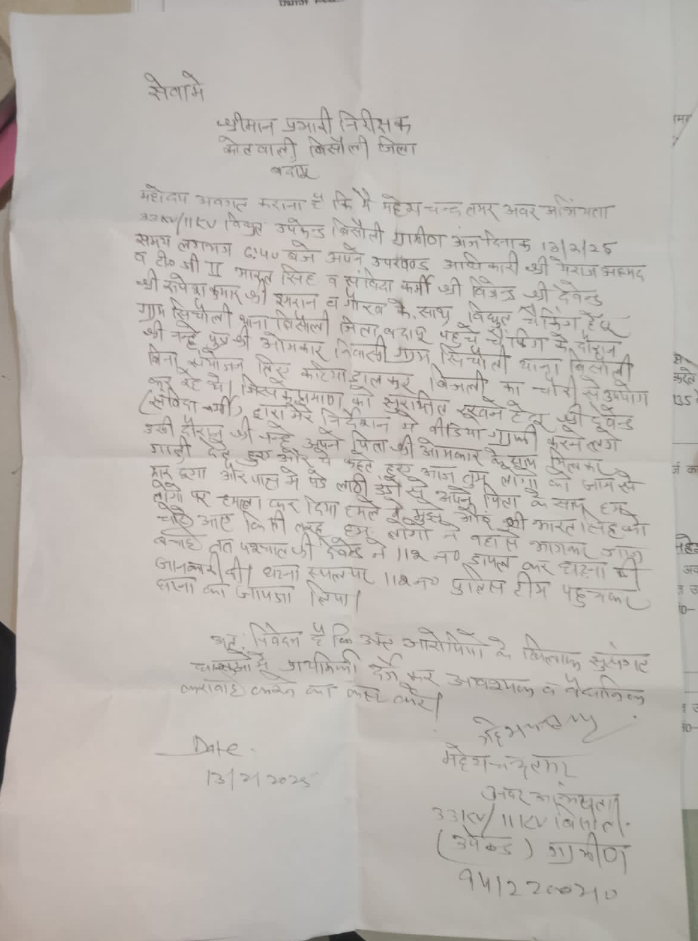 सेवामे
श्रीमान प्रभारी निरीक्षक
कोतवाली बिसौली जिला
बदायूं
महोदय अवगत कराना है कि मै महेश चन्द्र अवर अभियंता
33KV/11KV विद्युत उपकेन्द्र बिसौली ग्रामीण आज दिनांक 13/2/25
समय लगभग 6:50 बजे अपने उपखण्ड अधिकारी श्री मेराज अहमद
व टी० जी II भारत सिंह व संविदा कर्मी श्री विजेन्द्र श्री देवेन्द्र
श्री रूपेश कुमार श्री इमरान व गौरव के साथ विद्युत चैकिंग हेतु
ग्राम सिचौली थाना बिसौली जिला बदायूं पहुंचे चैकिंग के दौरान
श्री नन्हे पुत्र श्री ओमकार निवासी ग्राम सिचौली थाना बिसौली
बिना संयोजन लिए कटिया डालकर बिजली का चोरी से उपयोग
कर रहे थे। जिसके प्रमाण को सुरक्षित रखने हेतु श्री देवेन्द्र
(संविदा कर्मी) द्वारा मेरे निर्देशन मे वीडियो ग्राफी करने लगे
उसी दौरान श्री नन्हे अपने पिता श्री ओमकार के साथ मिलकर
गाली देते हुए और ये कहते हुए आज तुम लोगो को जान से
मार दूंगा और पास मे पड़े लाठी डंडो से अपने पिता के साथ हम
लोगो पर हमला कर दिया हमले मे मुझे और श्री भारत सिंह को
चोटे आई किसी तरह हम लोगो ने वहां से भागकर जान
बचाई तत पश्चात श्री देवेन्द्र ने 112 न० डायल कर घटना की
जानकारी दी। घटना स्थल पर 112 न० पुलिस टीम पहुचकर
घटना का जायजा लिया।
अतः निवेदन है कि उक्त आरोपियो के खिलाफ सुसंगत
धाराओं मे प्राथमिकी दर्ज कर आवश्यक व वैधानिक
कार्यवाही करने का कष्ट करे।
Date.
13/2/2025
महेश चन्द्र
अवर अभियंता
33KV/11KV बिसौली
(उपकेन्द्र) ग्रामीण
9412200210